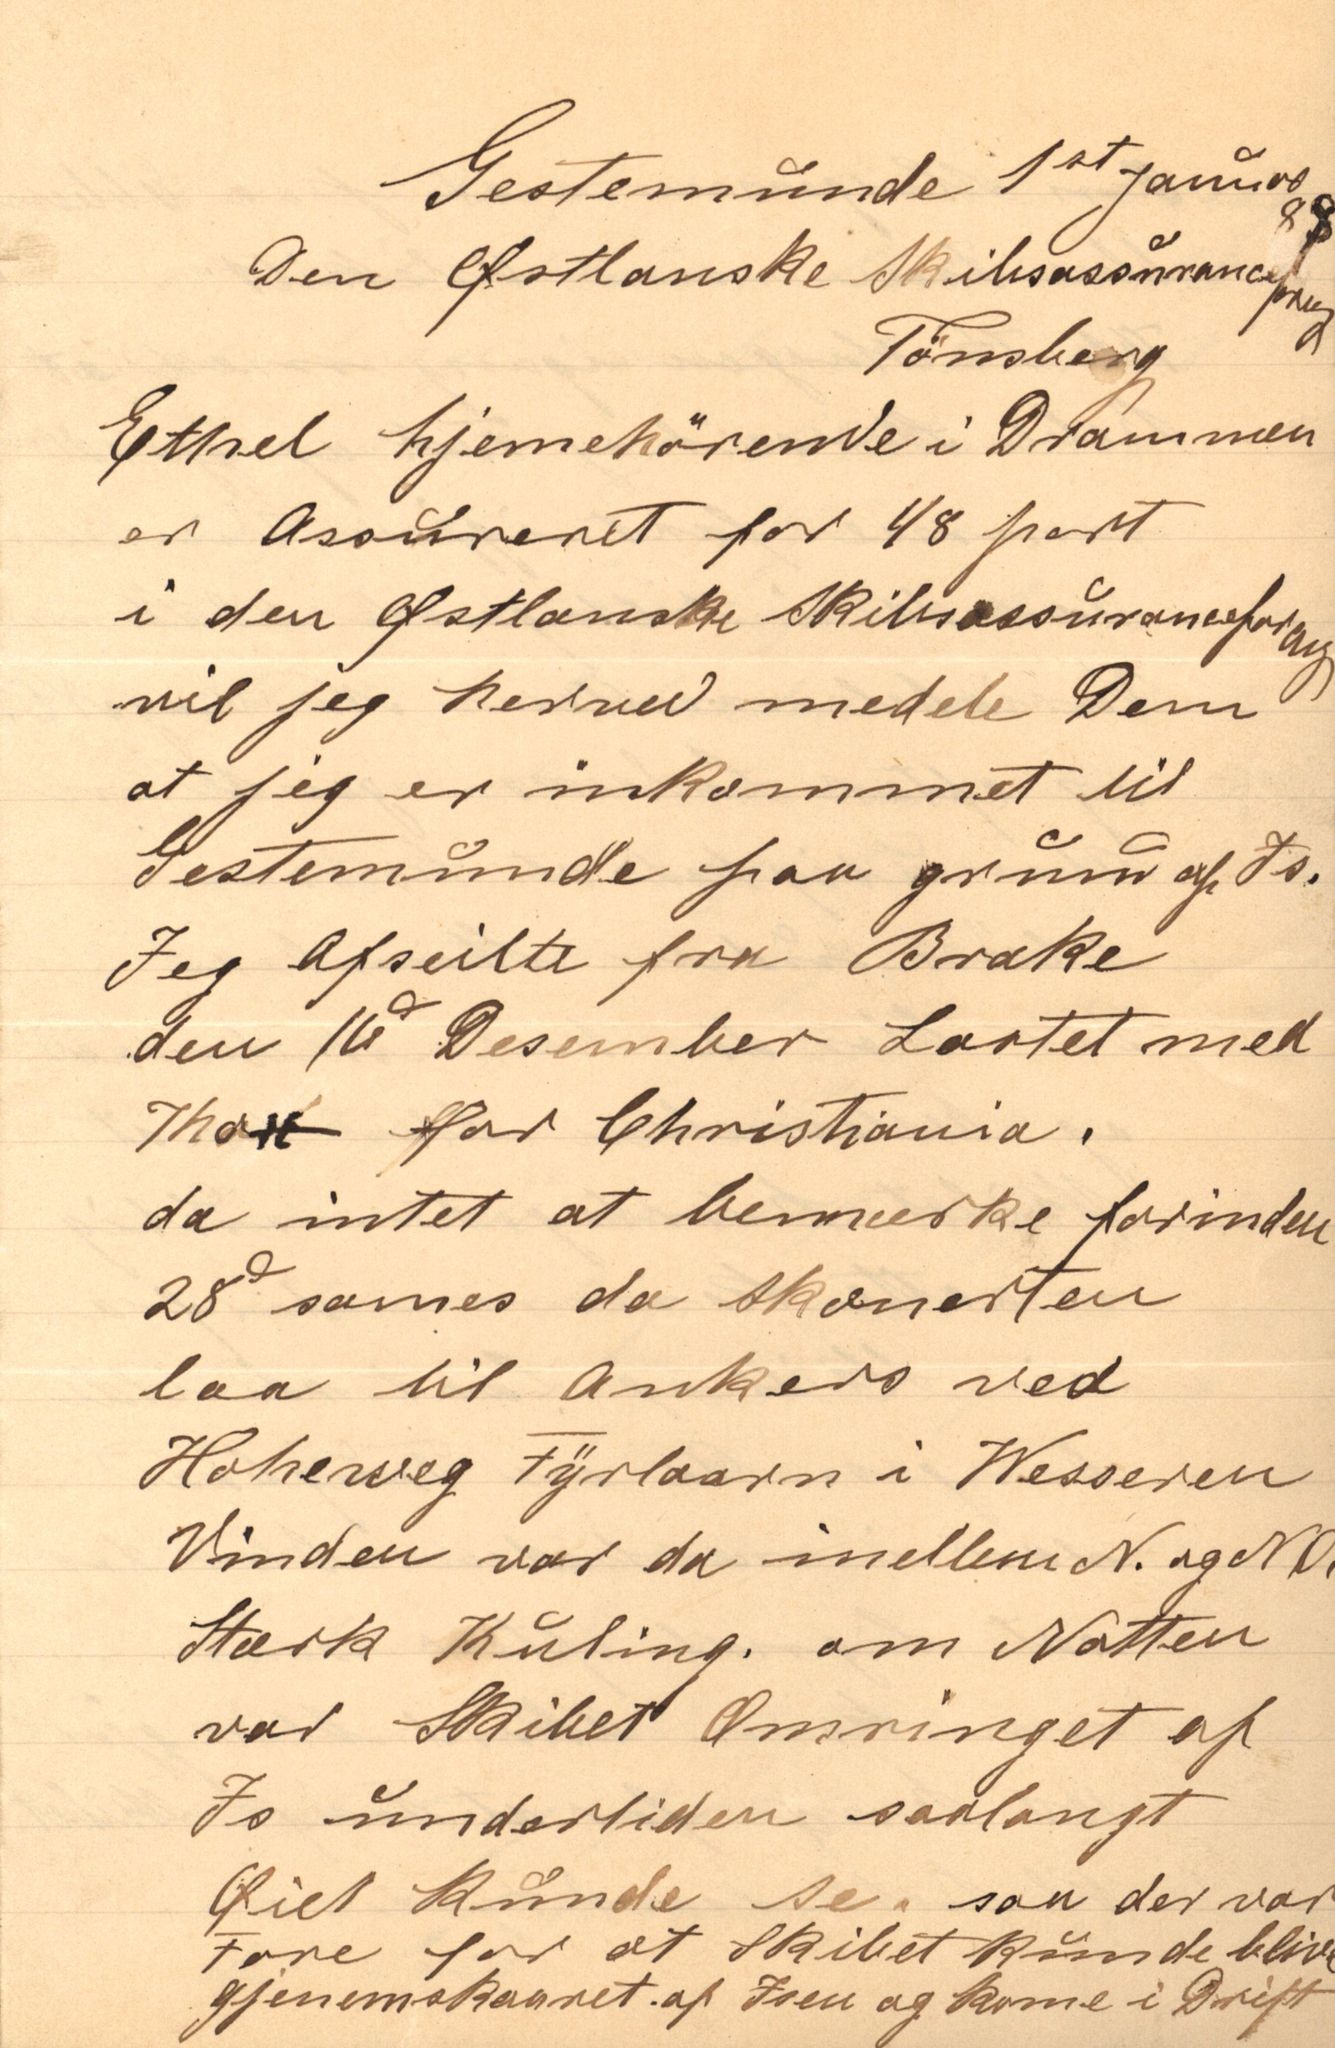 Gestemünde 1st Januar
88
Den Østlanske Skibsassüranceforeg
Tönsberg
Ethel hjemehörende i Drammen
er Assüreret for 1/8 part
i den Østlanske Skibsassüranceforeg
vil jeg herved medele Dem
at jeg er inkommet til
Gestemünde paa gründ af Is.
Jeg Afseilte fra Brake
den 16d Desember Lastet med
for Christiania.
da intet at bemærke forinden
28d sames da Skonerten
laa til Ankers ved
Hoheweg Fÿrtaarn i Wesseren
Vinden var da imellem N. og NO.
Stærk Küling. om Natten
var Skibet Omringet af
Is ünderliden saalangt
Øiet Künde se. saa der var
Fare for at Skibet Künde blive
gjenemskaaret af Isen og Kome i Drift